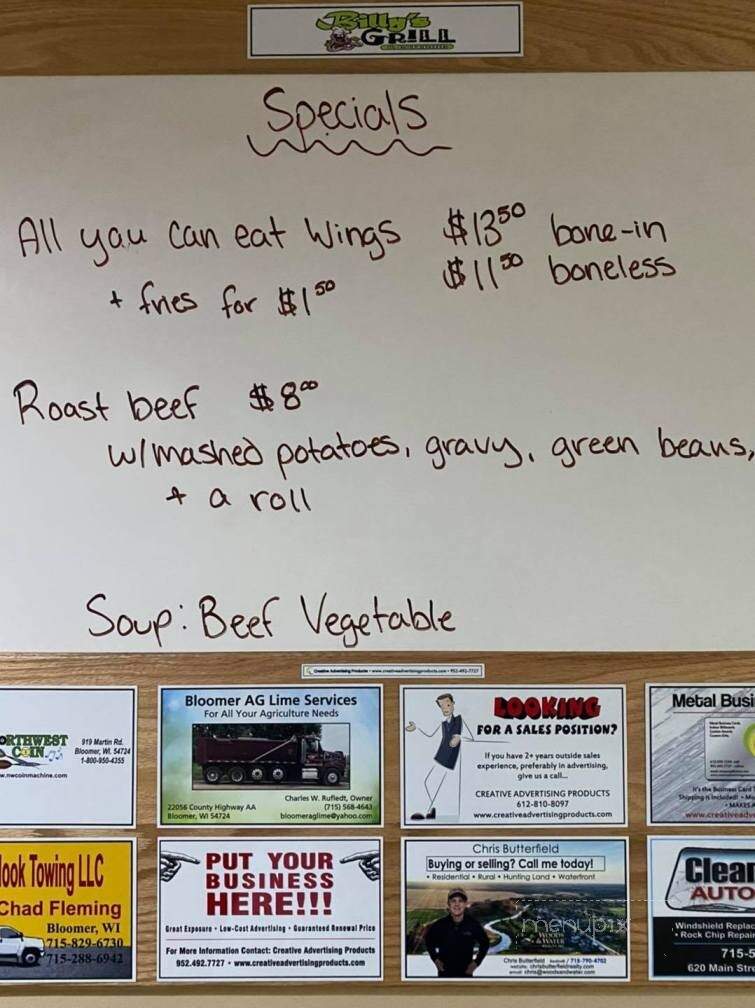 Billy's
GRILL
Specials
All you can eat Wings $13⁵⁰ bone-in
$11⁵⁰ boneless
+ fries for $1⁵⁰
Roast beef $8⁰⁰
w/mashed potatoes, gravy, green beans,
+ a roll
Soup: Beef Vegetable
Creative Advertising Products • www.creativeadvertisingproducts.com • 952-492-7727
ORTHWEST
COIN
919 Martin Rd.
Bloomer, WI. 54724
1-800-950-4355
.nwcoinmachine.com
Bloomer AG Lime Services
For All Your Agriculture Needs
Charles W. Rufledt, Owner
22056 County Highway AA
(715) 568-4643
Bloomer, WI 54724
bloomeraglime@yahoo.com
LOOKING
FOR A SALES POSITION?
If you have 2+ years outside sales
experience, preferably in advertising,
give us a call...
CREATIVE ADVERTISING PRODUCTS
612-810-8097
www.creativeadvertisingproducts.com
Metal Busi
It's the Business Card
Shipping is Included!
• MAKES
www.creativeadv
ook Towing LLC
Chad Fleming
Bloomer, WI
715-829-6730
715-288-6942
PUT YOUR
BUSINESS
HERE!!!
Great Exposure • Low-Cost Advertising • Guaranteed Renewal Price
For More Information Contact: Creative Advertising Products
952.492.7727 • www.creativeadvertisingproducts.com
Chris Butterfield
Buying or selling? Call me today!
• Residential • Rural • Hunting Land • Waterfront
menupix
WOODS
& WATER
Chris Butterfield 715-790-4702
website: chrisbutterfieldrealty.com
email: chris@woodsandwater.com
Clear
AUTO
Windshield Replac
• Rock Chip Repair
715-5
620 Main Stre